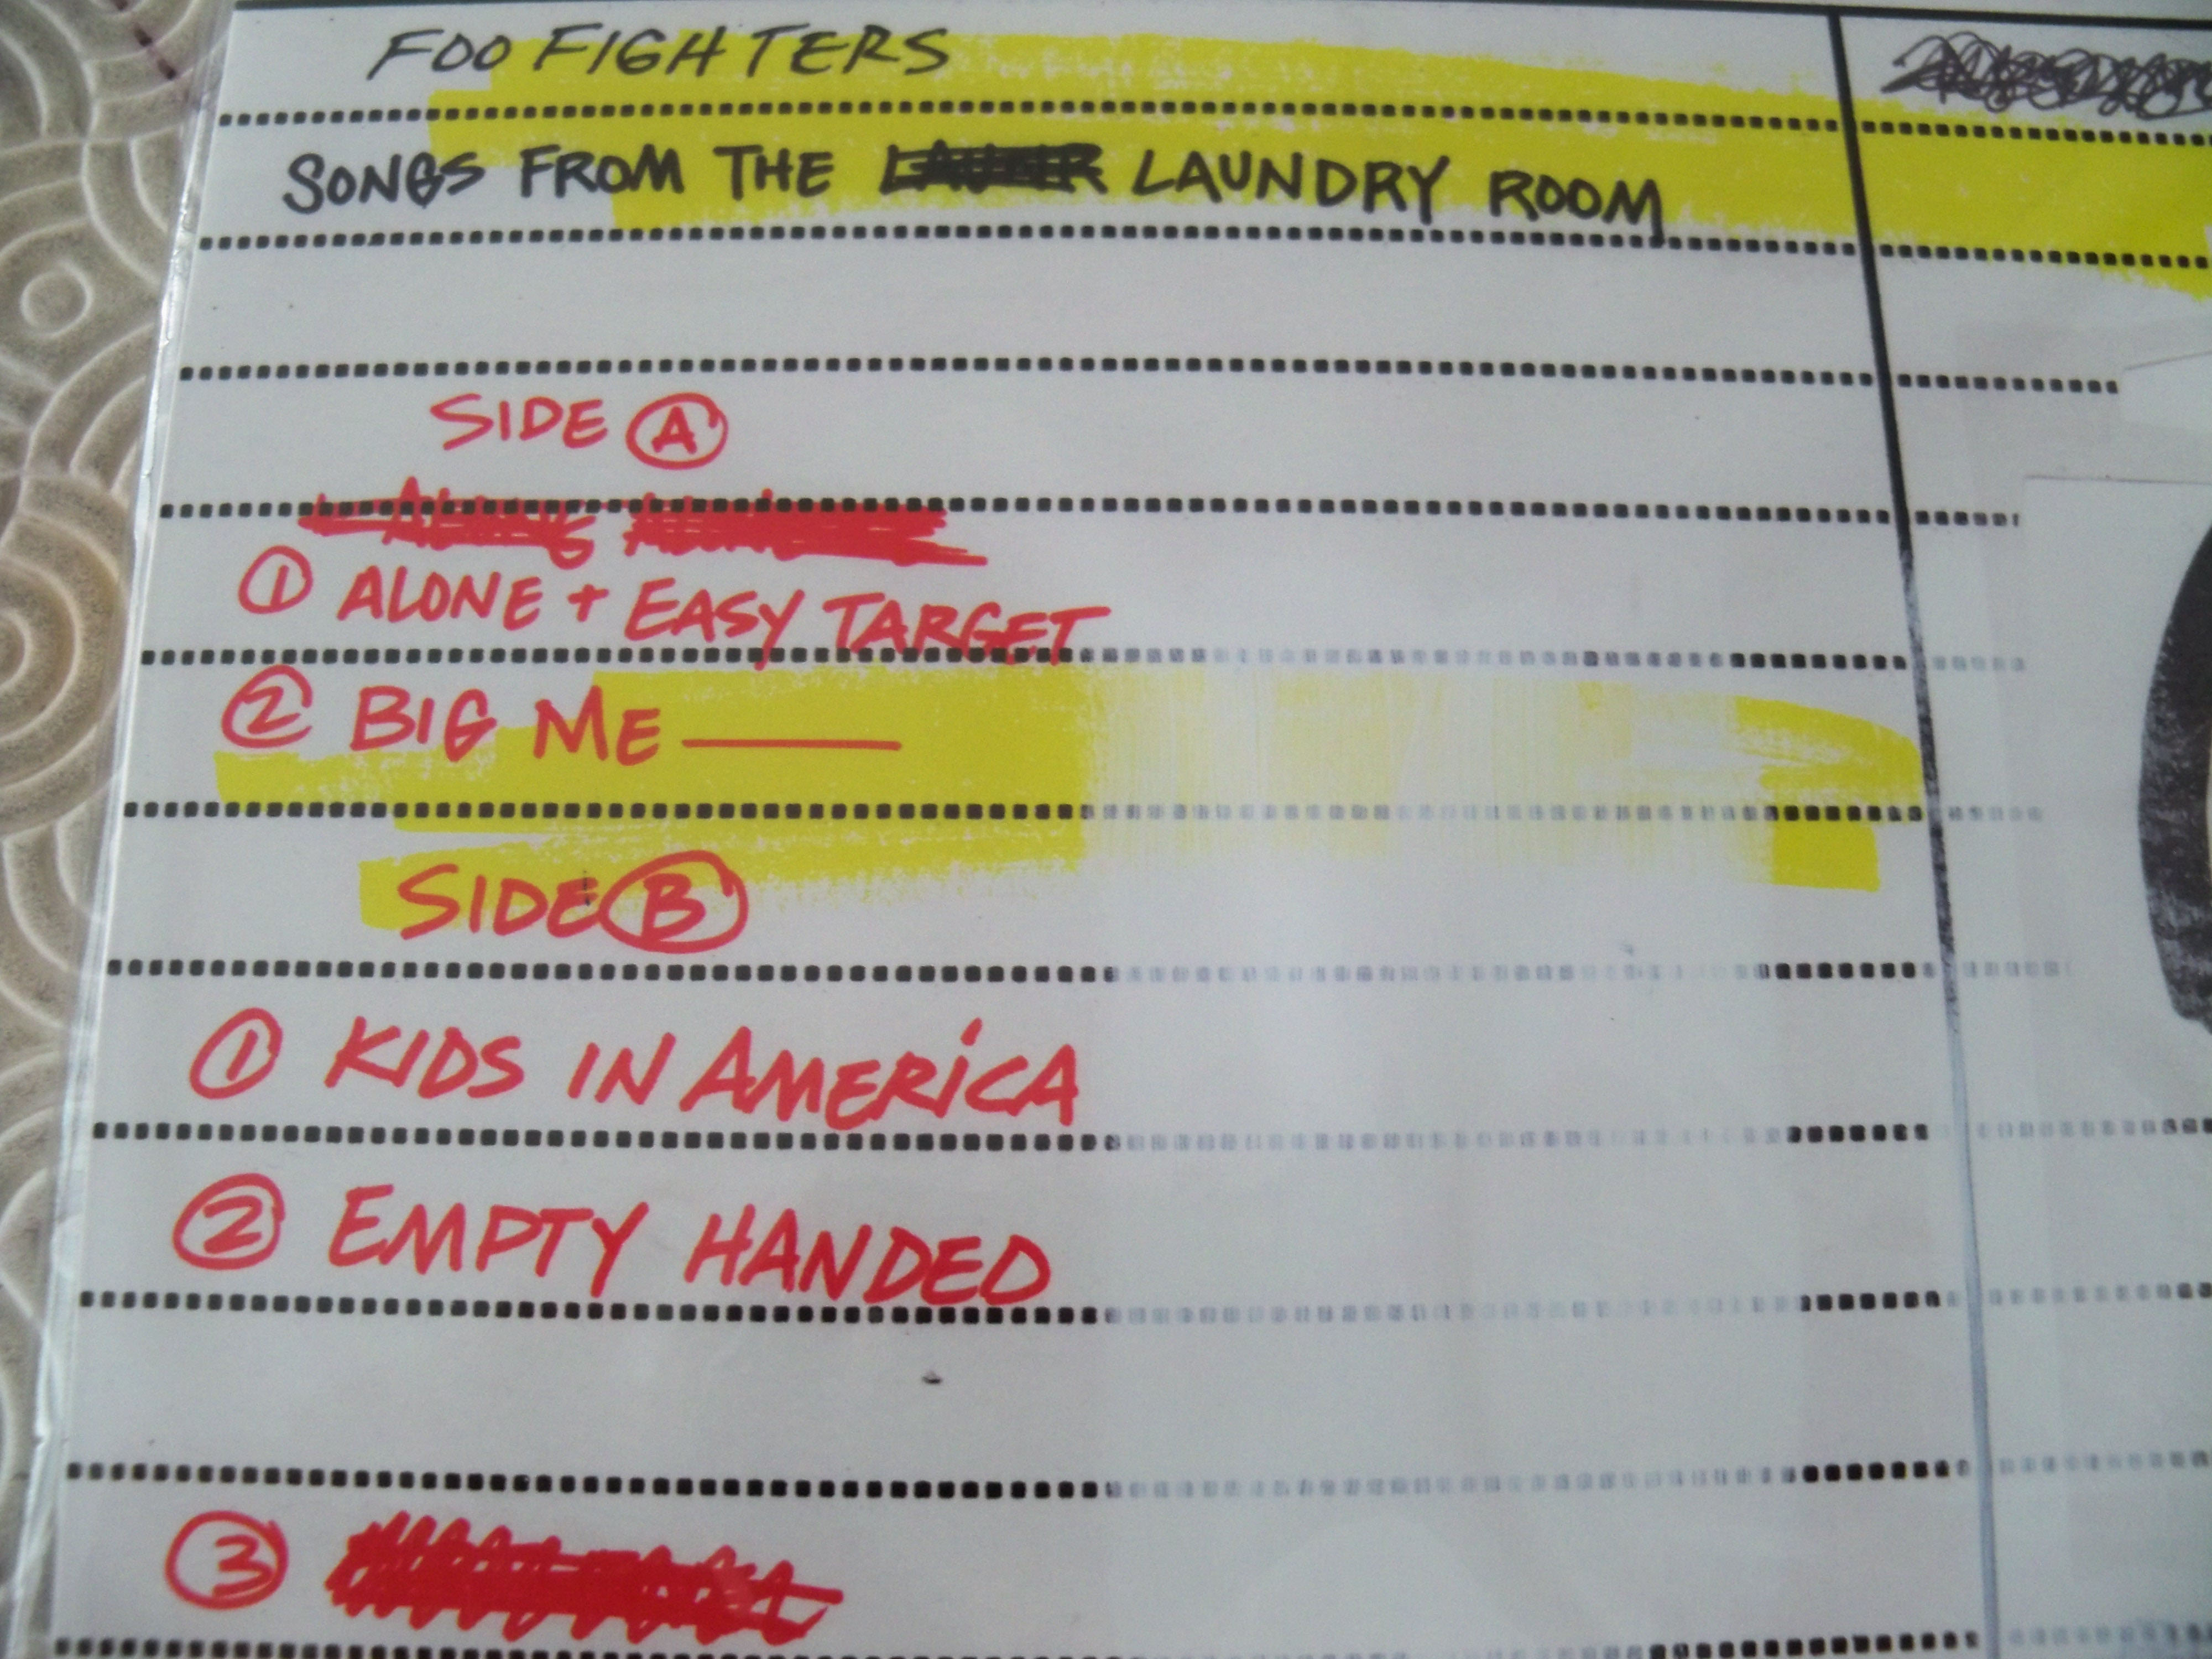 FOO FIGHTERS
SONGS FROM THE LAUNDRY ROOM
SIDE A
1 ALONE + EASY TARGET
2 BIG ME
SIDE B
1 KIDS IN AMERICA
2 EMPTY HANDED
3